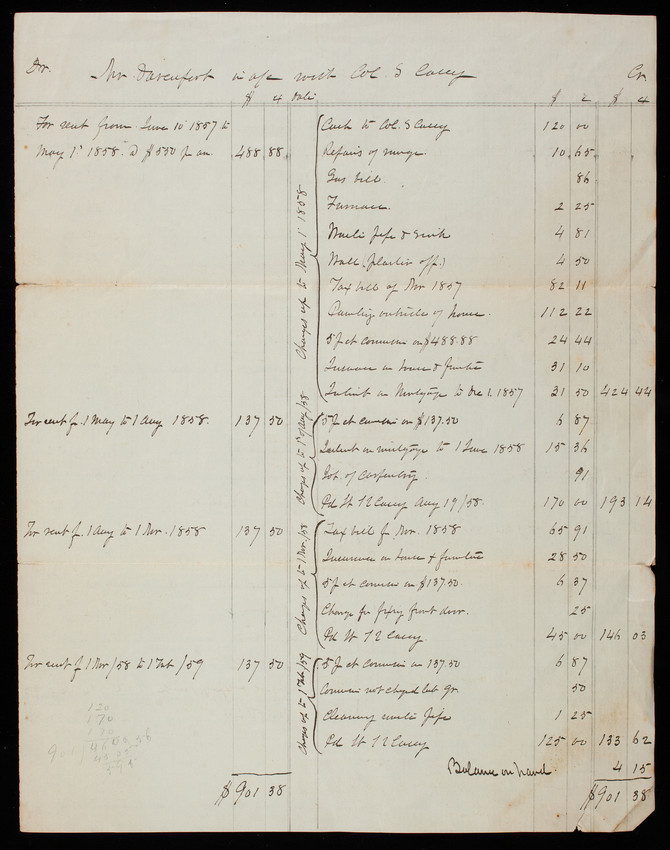 Dr. Mr Davenport in a/c with Col. S Casey Cr.
$ ¢ Dolls $ c $ ¢
For rent from June 10 1857 to
May 1st 1858 @ $550 p an. 488 88
Charges up to May 1st 1858
Cash to Col. S Casey 120 00
Repairs of range. 10 65
Gas bill 86
Furnace. 2 25
Waste pipe & sink 4 81
Wall (plaster off.) 4 50
Tax bill of Nov 1857 82 11
Painting outside of house. 112 22
5 p ct commn on $488.88 24 44
Insurance on house & furniture 31 10
Interest on Mortgage to Dec 1. 1857 31 50 424 44
For rent f. 1 May to 1 Aug 1858. 137 50
Charges up to 1st Aug/58
5 p ct commn on $137.50 6 87
Interest on mortgage to 1 June 1858 15 36
Job. of Carpentry 91
Pd Lt T L Casey Aug 19/58. 170 00 193 14
For rent f. 1 Aug to 1 Nov. 1858 137 50
Charges up to 1 Nov./58
Tax bill f Nov. 1858 65 91
Insurance on house & furniture 28 50
5 p ct commn on $137.50. 6 37
Charge for fixing front door. 25
Pd Lt T L Casey 45 00 146 03
For rent f 1 Nov/58 to 1 Feb/59 137 50
Charges up to 1 Feb/59
5 p ct commn on 137.50 6 87
Commn not charged last qr. 50
Cleaning waste pipe 1 25
Pd Lt T L Casey 125 00 133 62
120
170
Balance on hand. 4 15
$901 38 $901 38